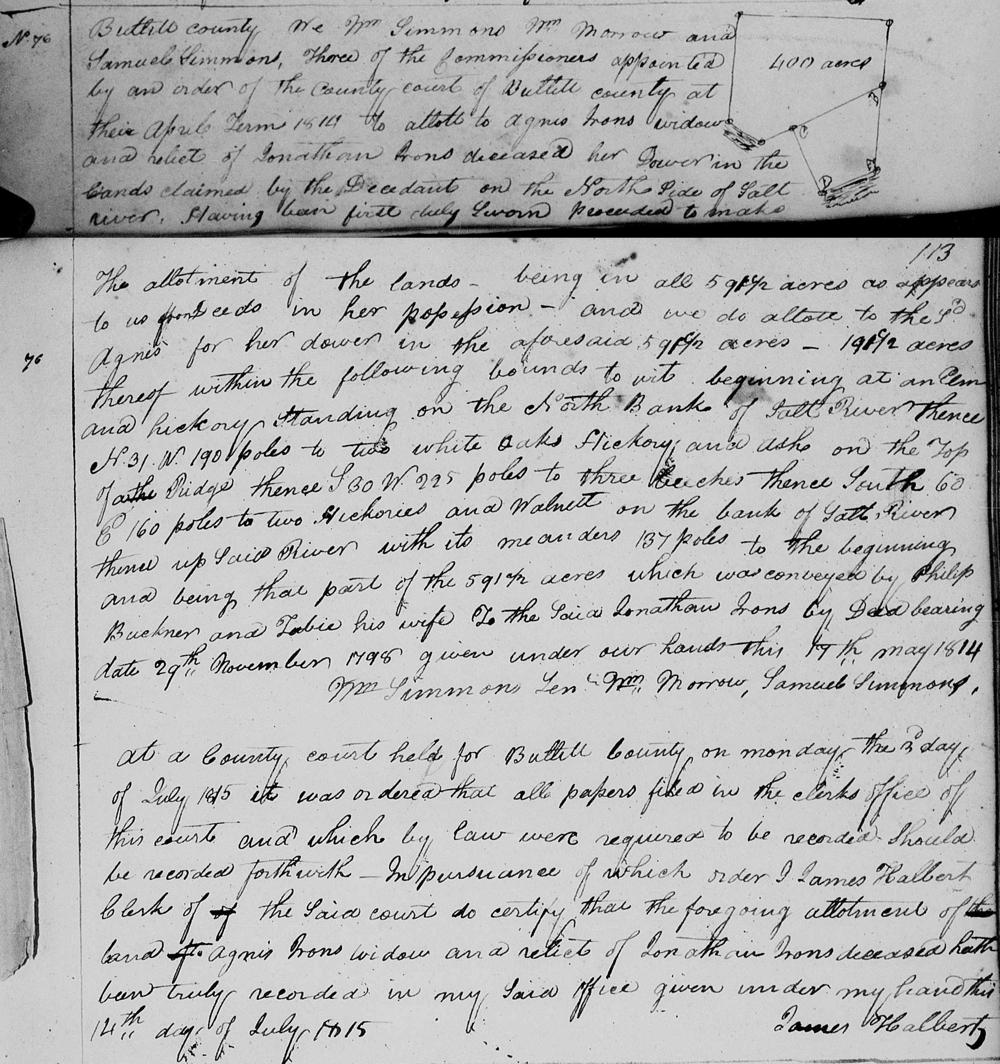 No 76
Bullitt county We Wm Simmons Wm Morrow and
Samuel Simmons, Three of the Commissioners appointed
by an order of the County court of Bullitt county at
their April Term 1814 to allott to Agnis Irons widow
and relict of Jonathan Irons deceased her Dower in the
Lands claimed by the Decedant on the North Side of Salt
river. Having been first duly Sworn proceeded to make
400 acres
113
The allotment of the lands - being in all 591 1/2 acres as appears
to us from Deeds in her possession - and we do allott to the Sd
76
Agnis for her dower in the aforesaid 591 1/2 acres - 191 1/2 acres
thereof within the following bounds to wit beginning at an Elm
and hickory Standing on the North Bank of Salt River thence
N. 31. W. 190 poles to two white oaks Hickory and Ash on the Top
of a Ridge thence S 30 W. 225 poles to three beeches thence South 60
E 160 poles to two Hickories and Walnutt on the bank of Salt River
thence up Said River with its meanders 137 poles to the beginning
and being that part of the 591 1/2 acres which was conveyed by Philip
Buckner and Tabie his wife To the Said Jonathan Irons by Deed bearing
date 29th November 1798 given under our hands this 17th may 1814
Wm Simmons Senr Wm Morrow, Samuel Simmons,
at a County court held for Bullitt County on monday the 3d day
of July 1815 it was ordered that all papers filed in the clerks office of
this court and which by law were required to be recorded Should
be recorded forthwith - In pursuance of which order I James Halbert
Clerk of of the Said court do certify that the foregoing allotment of the
land to Agnis Irons widow and relict of Jonathan Irons deceased hath
been truly recorded in my Said office given under my hand this
14th day of July 1815
James Halbert